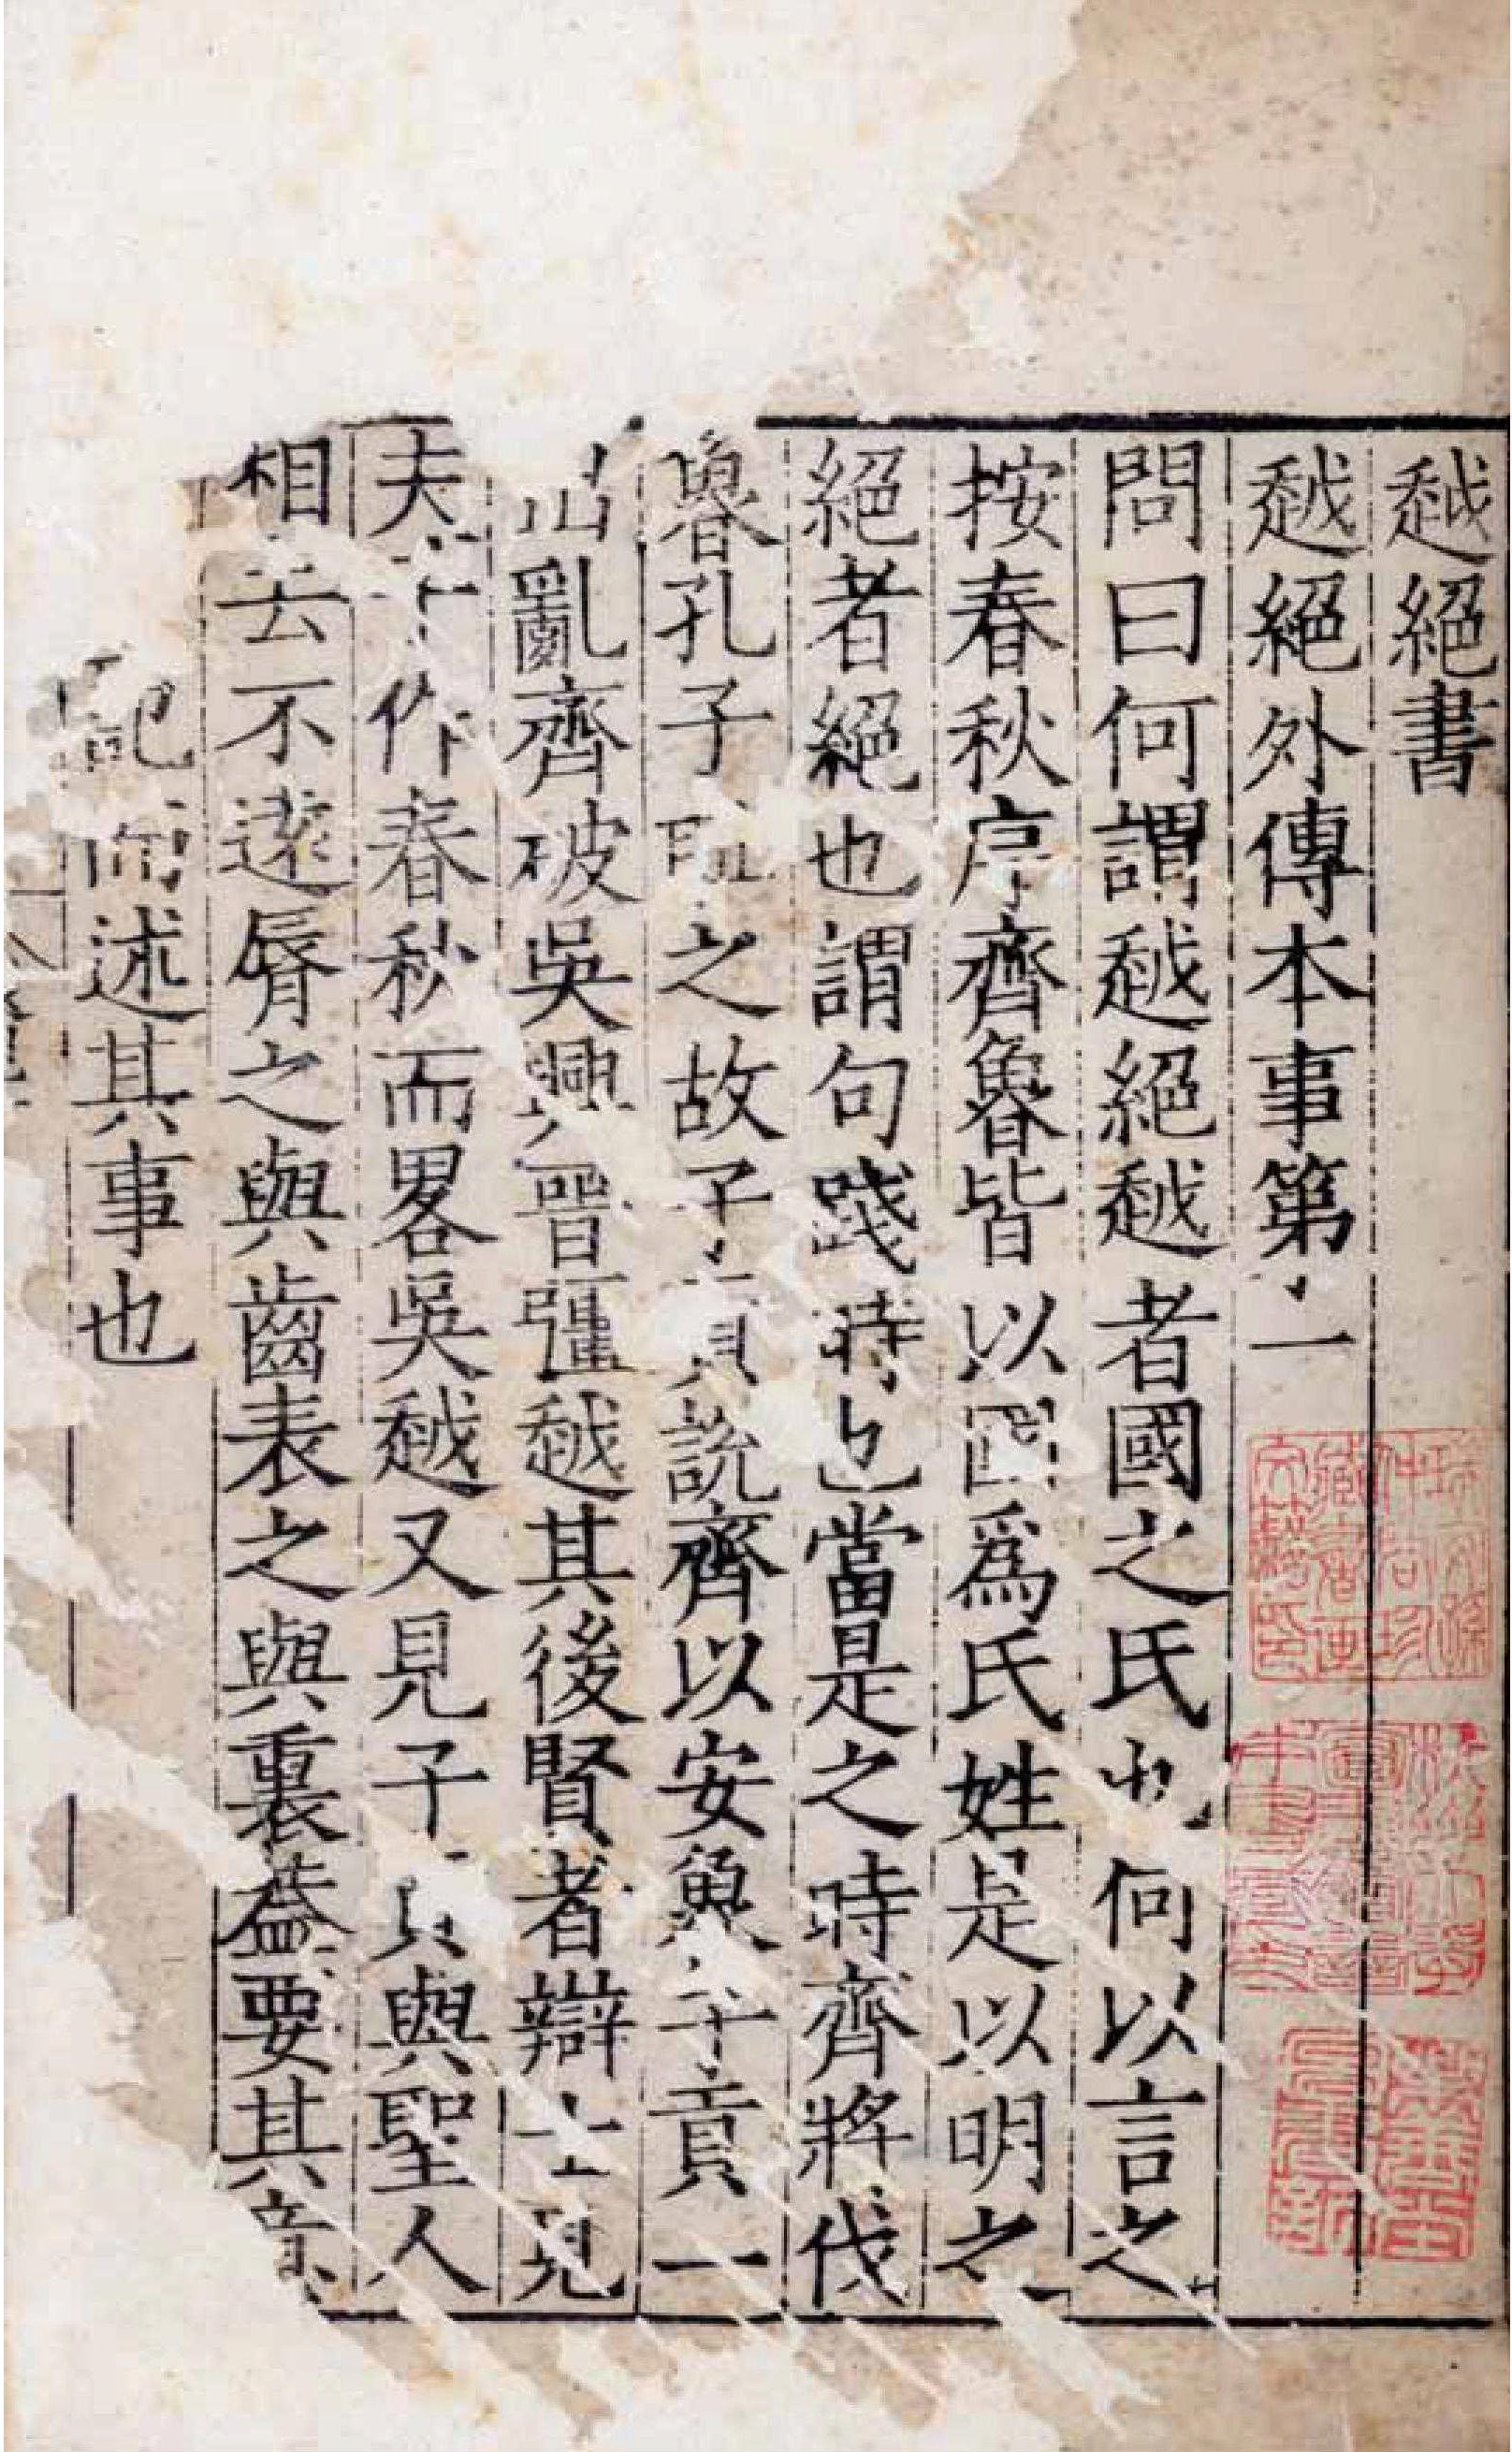 越絕書
越絕外傳本事第一
問曰何謂越絕越者國之氏也何以言之
按春秋序齊魯皆以國爲氏姓是以明之
絕者絕也謂句踐時也當是之時齊將伐
魯孔子恥之故子貢說齊以安魯子貢一
出亂齊破吳興晉彊越其後賢者辯士見
夫子作春秋而畧吳越又見子貢與聖人
相去不遠脣之與齒表之與裏葢要其意
記而述其事也